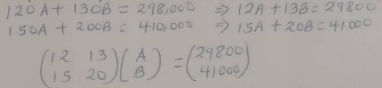 120A + 130B = 298,000 ⇒ 12A + 13B = 29800
150A + 200B = 410,000 ⇒ 15A + 20B = 41000
(12 13) (A) = (29800)
(15 20) (B) (41000)